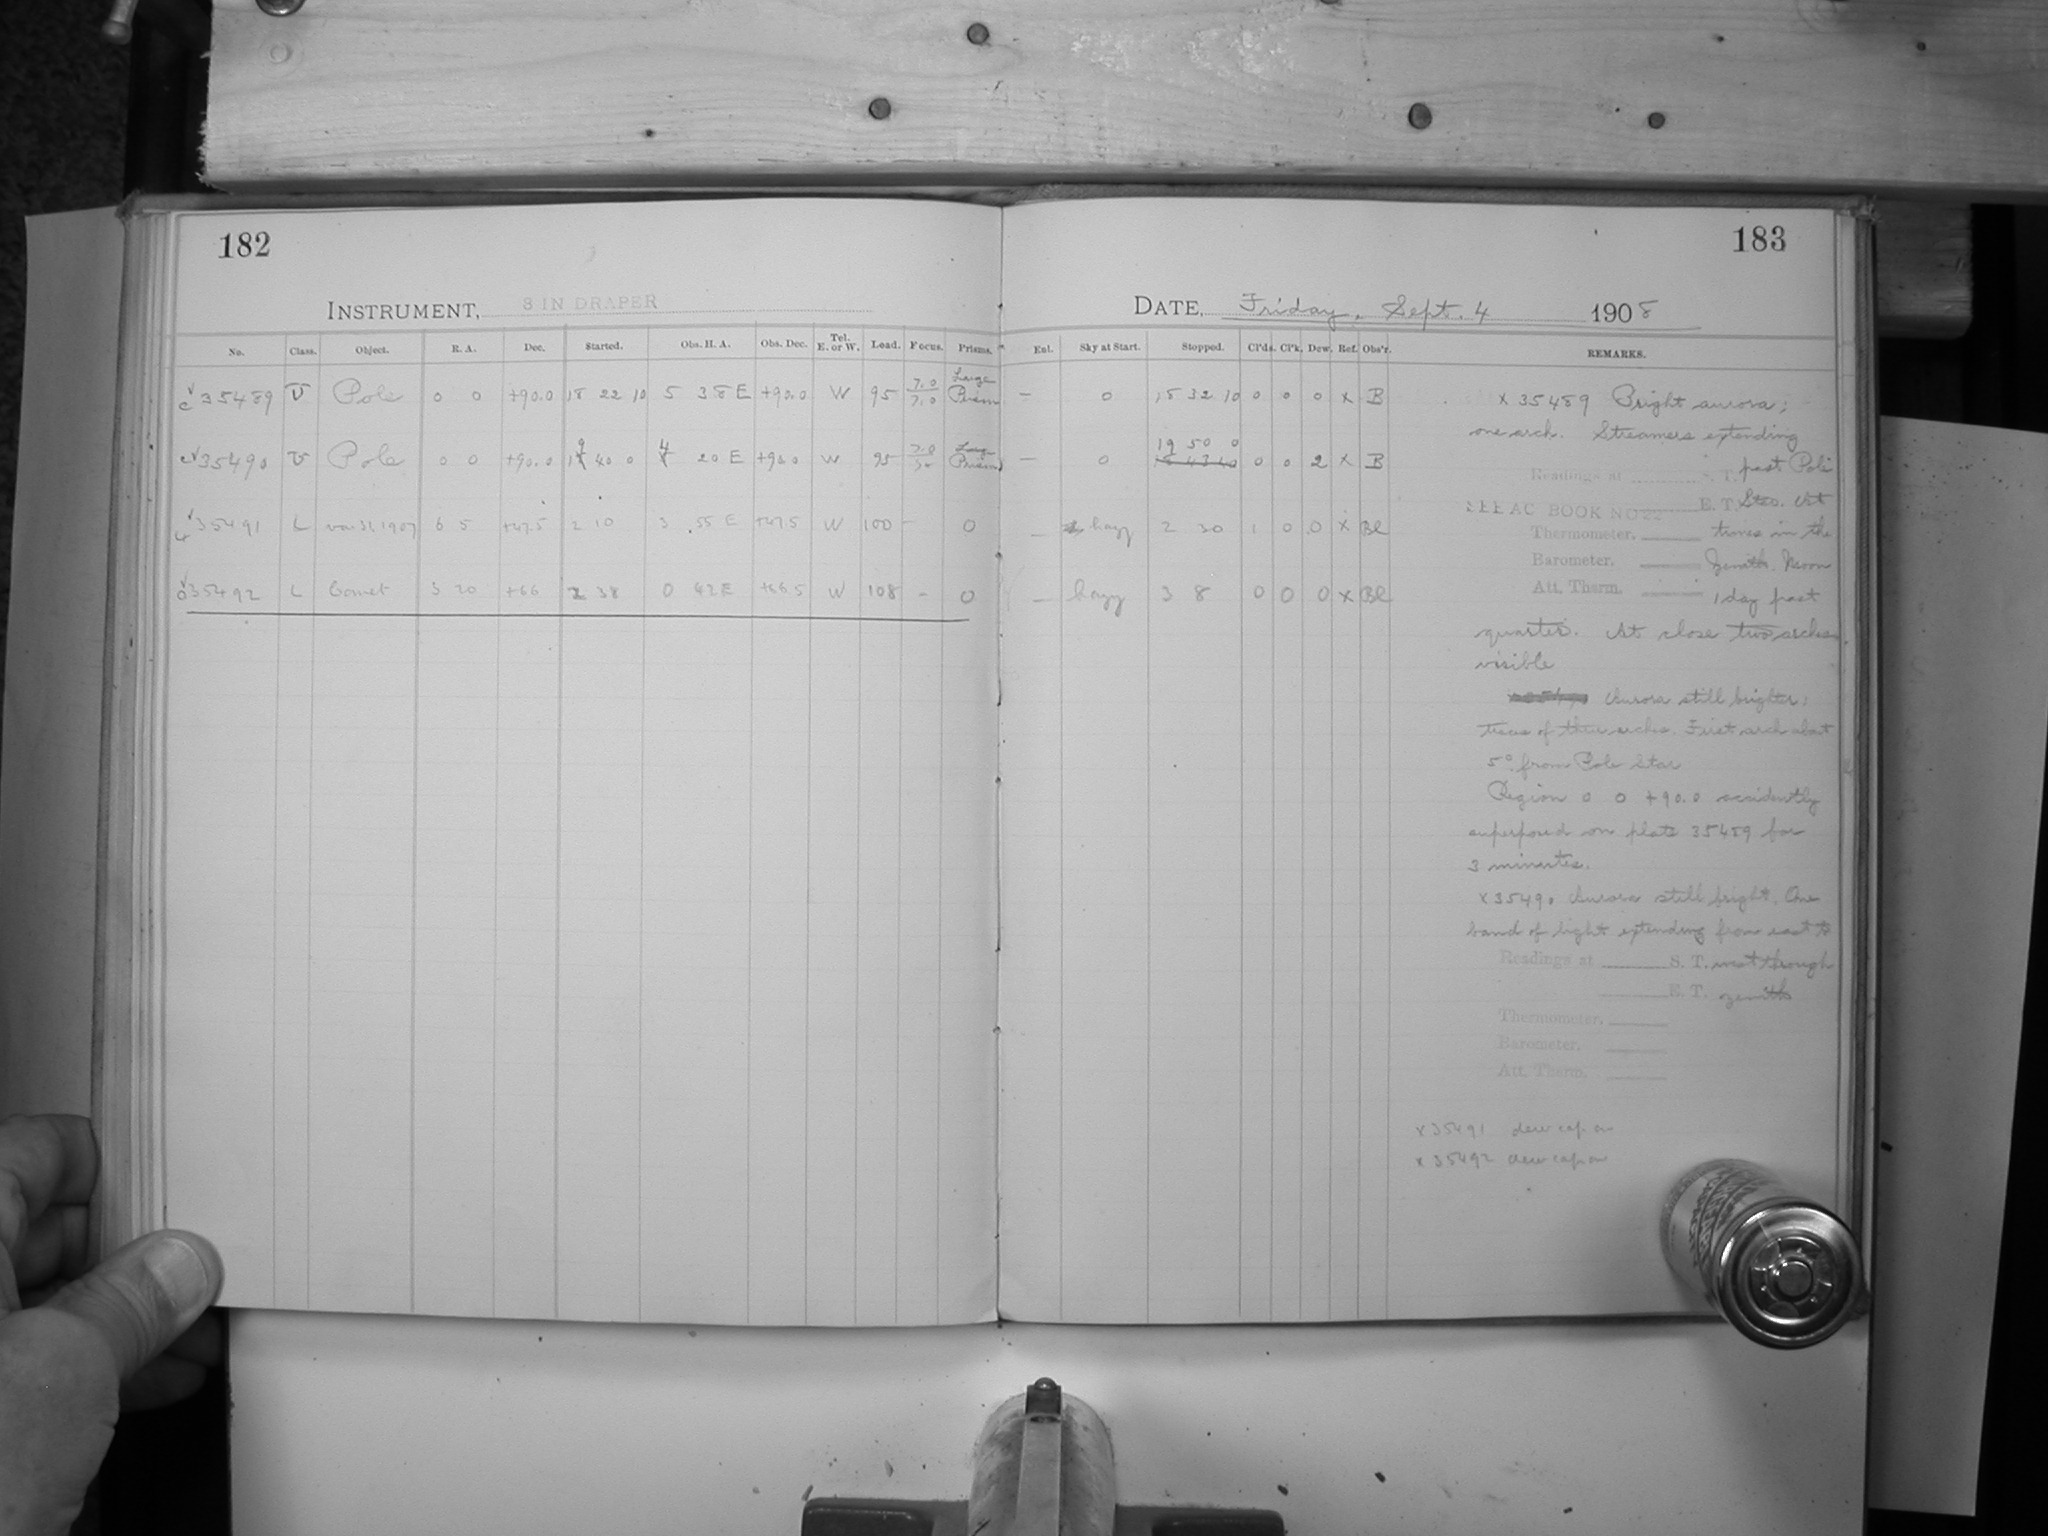 182
INSTRUMENT, 8 IN DRAPER
No. Class. Object. R. A. Dec. Started. Obs. H. A. Obs. Dec. Tel. E. or W. Lead. Focus. Prisms.
35489 V Pole 0 0 +90.0 18 22 10 5 38 E +90.0 W 95 7.0 7.0 Large Prism
35490 V Pole 0 0 +90.0 19 40 0 4 20 E +90.0 W 95 7.0 Large Prism
35491 L 6 5 +47.5 2 10 3 55 E +47.5 W 100 - 0
35492 L Comet 3 20 +66 2 38 0 42 E +66.5 W 108 - 0
183
DATE, Friday, Sept. 4 1908
Ent. Sky at Start. Stopped. Cl'ds. Cl'k. Dew. Ref. Obs'r. REMARKS.
— 0 18 32 10 0 0 0 x B
— 0 19 50 0 0 0 2 x B
— hazy 2 30 1 0 0 x Bl
— hazy 3 8 0 0 0 x Bl
x 35489 Bright aurora;
one arch. Streamers extending
past Pole
Readings at S. T.
SEE AC BOOK NO 22 E. T. At
Thermometer, times in the
Barometer, Zenith. Moon
Att. Therm. 1 day past
quarter. At close two arches
visible
Aurora still brighter;
traces of three arches. First arch about
5° from Pole Star
Region 0 0 +90.0 accidently
superposed on plate 35489 for
3 minutes.
x 35490 Aurora still bright. One
band of light extending from east to
Readings at S. T. west through
E. T. zenith
Thermometer,
Barometer,
Att. Therm.
x 35491 dew cap on
x 35492 dew cap on